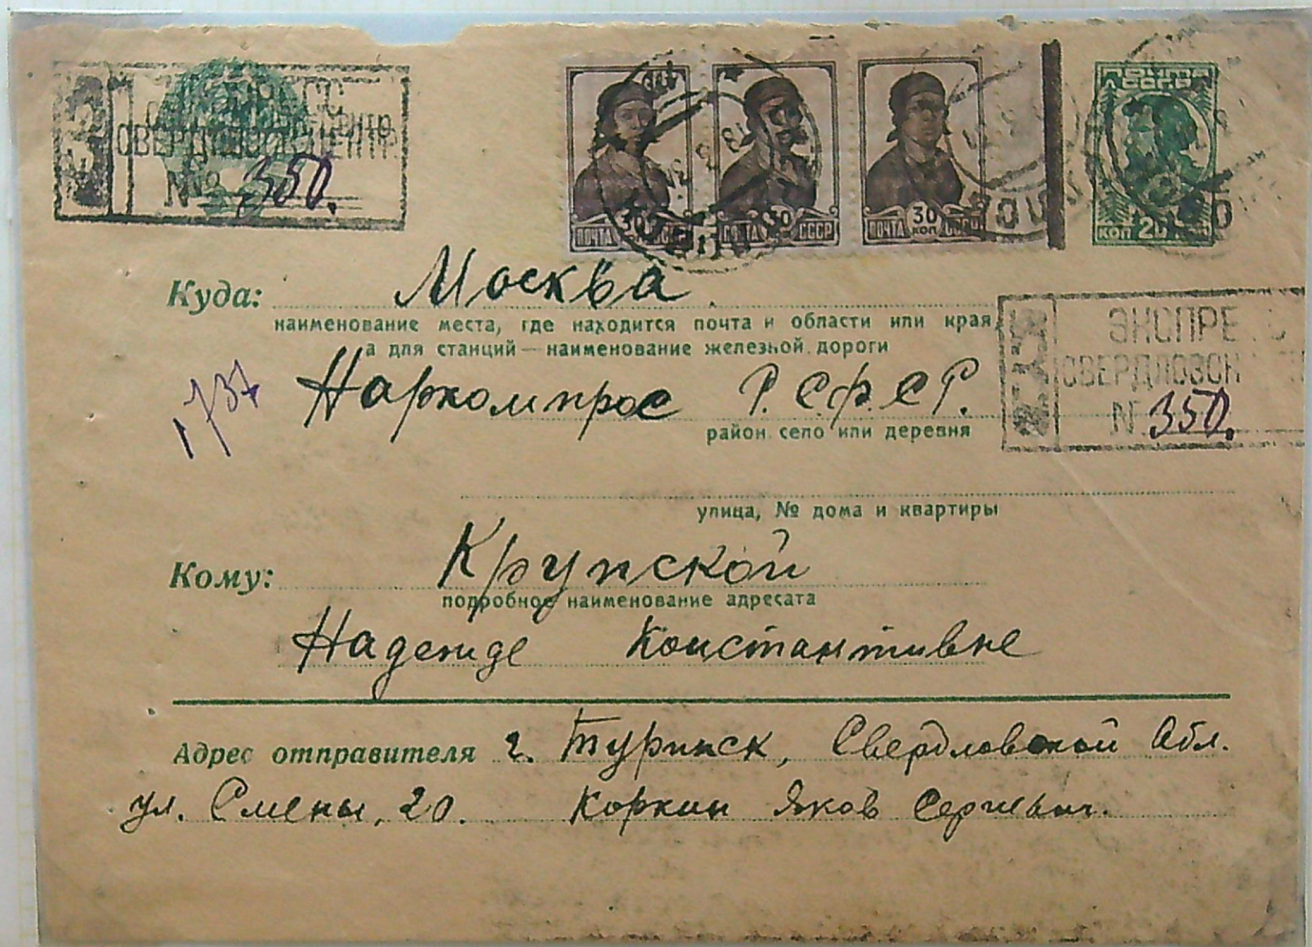 ЭКСПРЕСС
СВЕРДЛОВСК ЦЕНТР
№ 350.
ПОЧТА СССР 30 КОП
ПОЧТА СССР 30
ПОЧТА 30 КОП СССР
ПОЧТА
СССР
КОП 20
Куда: Москва.
наименование места, где находится почта и области или края,
а для станций — наименование железной дороги
ЭКСПРЕ С
СВЕРДЛОВСК
N 350.
1737
Наркомпрос Р.С.Ф.С.Р.
район село или деревня
улица, № дома и квартиры
Кому: Крупской
подробное наименование адресата
Надежде Константивне
Адрес отправителя г. Туринск, Свердловской Обл.
ул. Смены, 20. Коркин Яков Сергиевич.